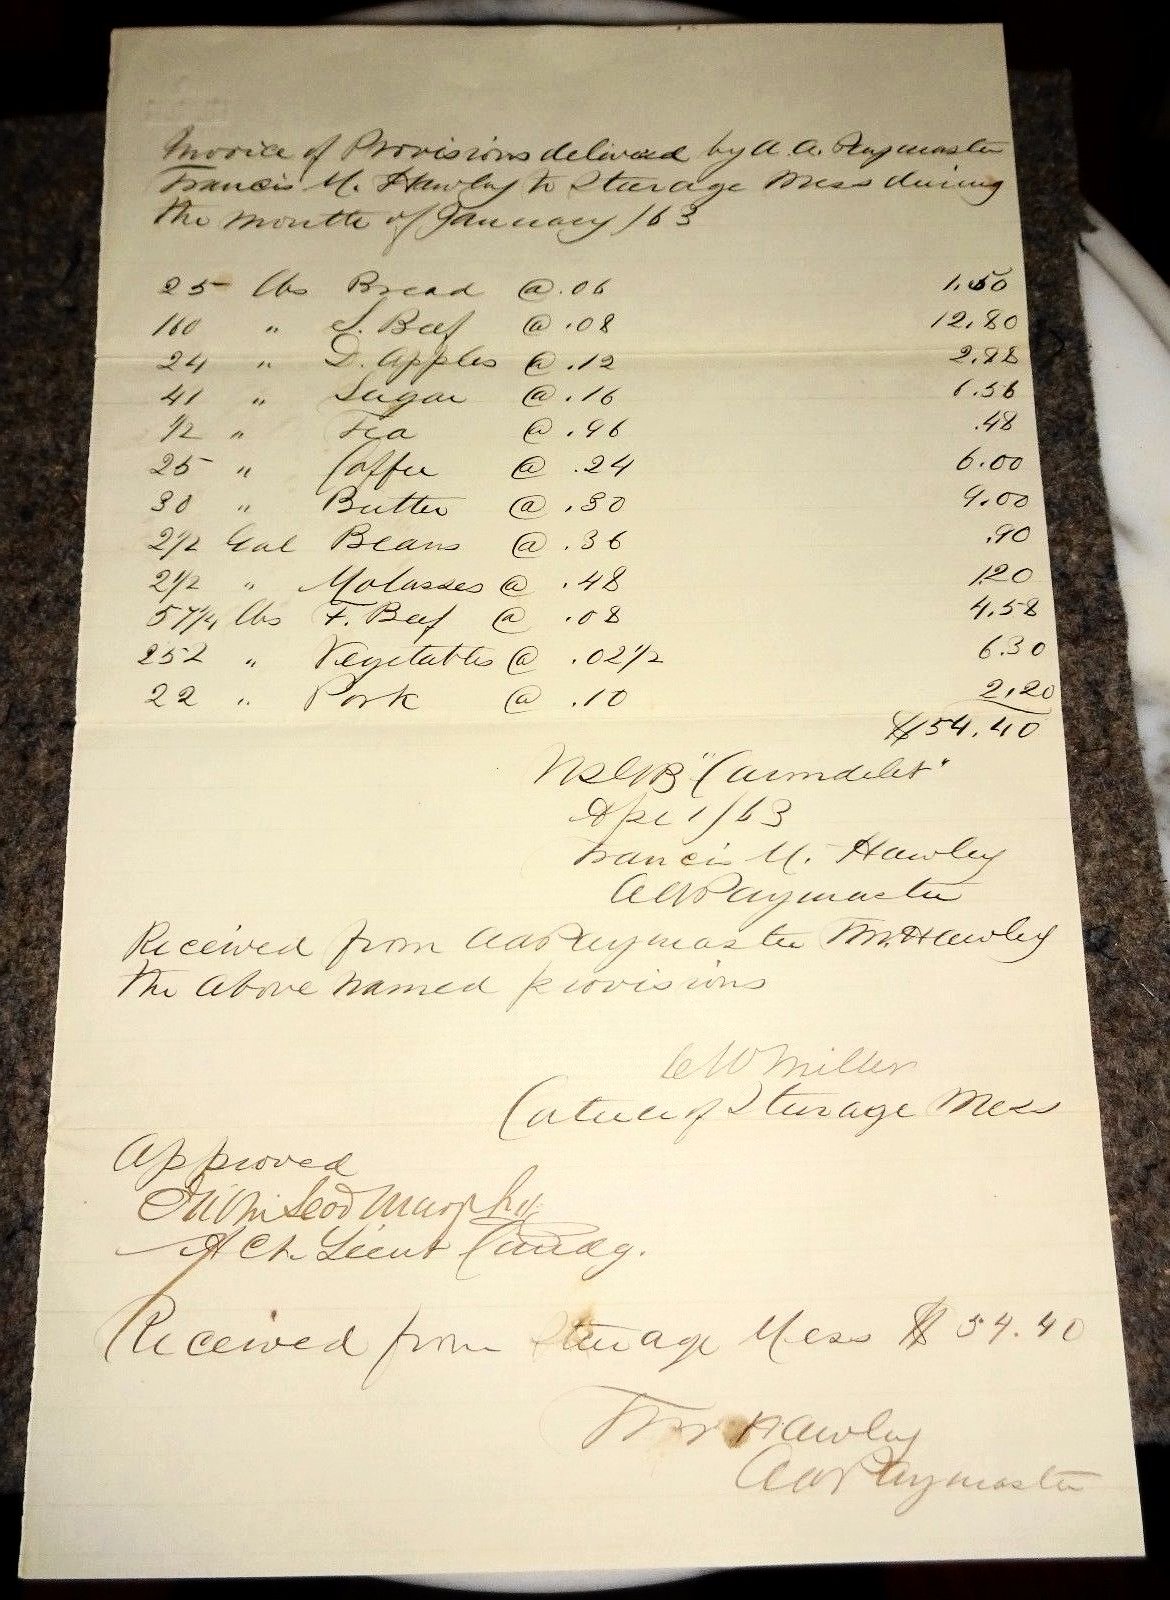 Invoice of Provisions delivered by A. A. Paymaster
Francis M. Hawley to Steerage Mess during
the month of January /63
25 lbs Bread @ .06 1.50
160 " S. Beef @ .08 12.80
24 " D. Apples @ .12 2.88
41 " Sugar @ .16 6.56
1/2 " Tea @ .96 .48
25 " Coffee @ .24 6.00
30 " Butter @ .30 9.00
2 1/2 Gal Beans @ .36 .90
2 1/2 " Molasses @ .48 1.20
57 1/4 lbs F. Beef @ .08 4.58
252 " Vegetables @ .02 1/2 6.30
22 " Pork @ .10 2.20
$54.40
USGB "Carondelet"
Apr 1/63
Francis M. Hawley
AA Paymaster
Received from AA Paymaster F.M. Hawley
the above named provisions
Miller
Caterer of Steerage Mess
Approved
McLeod Murphy
Act. Lieut Comdg.
Received from Steerage Mess $54.40
F M Hawley
AA Paymaster